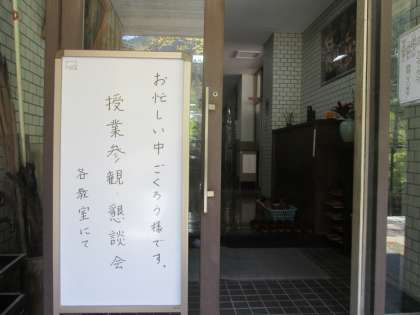 お忙しい中ごくろう様です。
授業参観・懇談会
各教室にて